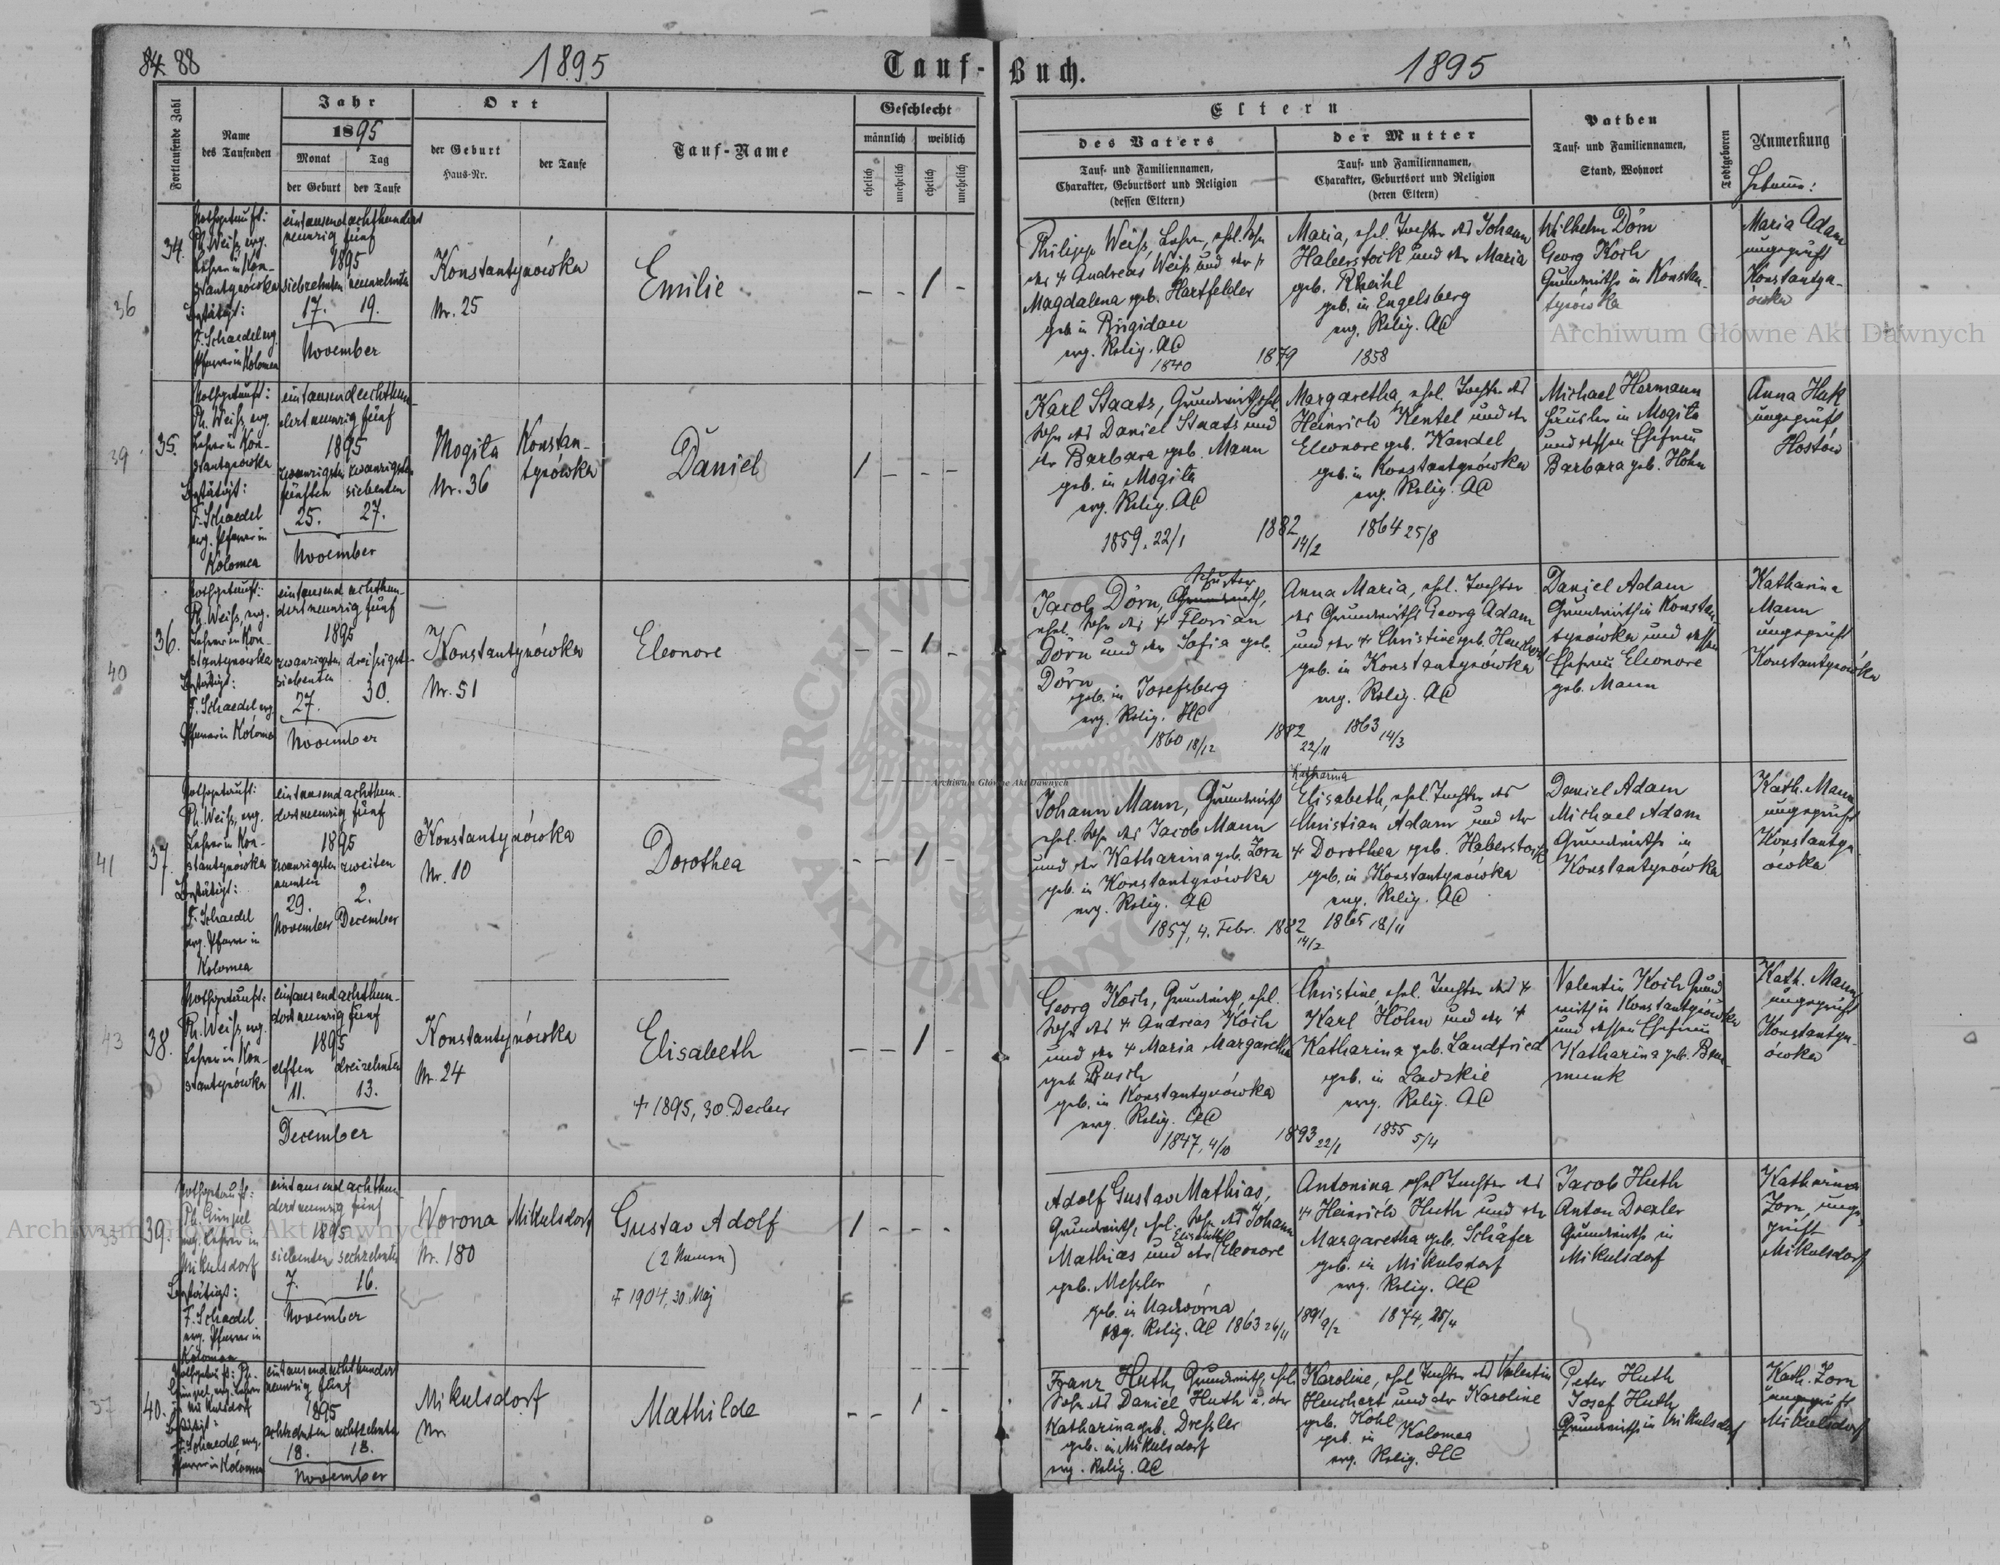 84. 88
1895
Tauf-Buch.
1895
Fortlaufende Zahl
Name
des Taufenden
Jahr
1895
Monat
Tag
der Geburt
der Taufe
Ort
der Geburt
Haus-Nr.
der Taufe
Tauf-Name
Geschlecht
männlich
weiblich
ehelich
unehelich
ehelich
unehelich
Eltern
des Vaters
Tauf- und Familiennamen,
Charakter, Geburtsort und Religion
(dessen Eltern)
der Mutter
Tauf- und Familiennamen,
Charakter, Geburtsort und Religion
(deren Eltern)
Pathen
Tauf- und Familiennamen,
Stand, Wohnort
Todtgeboren
Anmerkung
Hebamme:
36
34.
Nothgetauft:
Ph. Weiß, evg.
Lehrer in Kon-
stantynówka
Bestätigt:
F. Schaedel evg.
Pfarrer in Kolomea
eintausendachthundert
neunzig fünf
1895
siebzehnten neunzehnten
17. 19.
November
Konstantynówka
Nr. 25
Emilie
- - 1 -
Philipp Weiß, Lehrer, ehel. Sohn
des + Andreas Weiß und der +
Magdalena geb. Hartfelder
geb. in Rüsgidau
evg. Relig. AC
1840
1879
Maria, ehel. Tochter des Johann
Haberstock und der Maria
geb. Rheihl
geb. in Engelsberg
evg. Relig. AC
1858
Wilhelm Dörn
Georg Koch
Grundwirthe in Konstan-
tynówka
Maria Adam
ungeprüft
Konstantyn-
ówka
39
35.
Nothgetauft:
Ph. Weiß, evg.
Lehrer in Kon-
stantynówka
Bestätigt:
F. Schaedel
evg. Pfarrer in
Kolomea
eintausendachthun-
dertneunzig fünf
1895
zwanzigsten zwanzigsten
fünften siebenten
25. 27.
November
Mogiła
Nr. 36
Konstan-
tynówka
Daniel
1 - - -
Karl Staats, Grundwirth, ehel.
Sohn des Daniel Staats und
der Barbara geb. Mann
geb. in Mogiła
evg. Relig. AC
1859, 22/1
1882
14/2
Margaretha, ehel. Tochter des
Heinrich Kentel und der
Eleonore geb. Kandel
geb. in Konstantynówka
evg. Relig. AC
1864 25/8
Michael Hermann
Häusler in Mogiła
und dessen Ehefrau
Barbara geb. Höhn
Anna Huk
ungeprüft
Hostów
40
36.
Nothgetauft:
Ph. Weiß, evg.
Lehrer in Kon-
stantynówka
Bestätigt:
F. Schaedel evg.
Pfarrer in Kolomea
eintausend achthun-
dertneunzig fünf
1895
zwanzigsten dreißigsten
siebenten
27. 30.
November
Konstantynówka
Nr. 51
Eleonore
- - 1 -
Schuster
Jacob Dörn, Grundwirth,
ehel. Sohn des + Florian
Dörn und der Sofia geb.
Dörn
geb. in Josefsberg
evg. Relig. HC
1860 18/12
1882
22/11
Anna Maria, ehel. Tochter
des Grundwirths Georg Adam
und der + Christine geb. Heuchert
geb. in Konstantynówka
evg. Relig. AC
1863 14/3
Daniel Adam
Grundwirth in Konstan-
tynówka und dessen
Ehefrau Eleonore
geb. Mann
Katharina
Mann
ungeprüft
Konstantynówka
41
37.
Nothgetauft:
Ph. Weiß, evg.
Lehrer in Kon-
stantynówka
Bestätigt:
F. Schaedel
evg. Pfarrer in
Kolomea
eintausend achthun-
dertneunzig fünf
1895
zwanzigsten zweiten
neunten
29. 2.
November December
Konstantynówka
Nr. 10
Dorothea
- - 1 -
Johann Mann, Grundwirth
ehel. Sohn des Jacob Mann
und der Katharina geb. Zorn
geb. in Konstantynówka
evg. Relig. AC
1857, 4. Febr.
1882
14/2
Katharina
Elisabeth, ehel. Tochter des
Christian Adam und der
+ Dorothea geb. Haberstock
geb. in Konstantynówka
evg. Relig. AC
1865 18/11
Daniel Adam
Michael Adam
Grundwirthe in
Konstantynówka
Kath. Mann
ungeprüft
Konstantyn-
ówka
43
38.
Nothgetauft:
Ph. Weiß, evg.
Lehrer in Kon-
stantynówka
eintausendachthun-
dertneunzig fünf
1895
elften dreizehnten
11. 13.
December
Konstantynówka
Nr. 24
Elisabeth
+ 1895, 30 Decber
- - 1 -
Georg Koch, Grundwirth, ehel.
Sohn des + Andreas Koch
und der + Maria Margaretha
geb. Busch
geb. in Konstantynówka
evg. Relig. AC
1847, 4/10
1893 22/1
Christine, ehel. Tochter des +
Karl Höhn und der +
Katharina geb. Landfried
geb. in Ladzkie
evg. Relig. AC
1855 5/4
Valentin Koch Grund-
wirth in Konstantynówka
und dessen Ehefrau
Katharina geb. Bru-
munk
Kath. Mann
ungeprüft
Konstantyn-
ówka
39.
Nothgetauft:
Ph. Gimpel
evg. Lehrer in
Mikulsdorf
Bestätigt:
F. Schaedel
evg. Pfarrer in
Kolomea
eintausendachthun-
dertneunzig fünf
1895
siebenten sechzehnten
7. 16.
November
Worona
Nr. 180
Mikulsdorf
Gustav Adolf
(2 Namen)
+ 1904, 30. Maj
1 - - -
Adolf Gustav Mathias,
Grundwirth, ehel. Sohn des Johann
Mathias und der (Elisabeth) Eleonore
geb. Meßler
geb. in Nadwórna
evg. Relig. AC 1863 26/11
1891 9/2
Antonina, ehel. Tochter des
+ Heinrich Huth und der
Margaretha geb. Schäfer
geb. in Mikulsdorf
evg. Relig. AC
1874, 25/4
Jacob Huth
Anton Drexler
Grundwirthe in
Mikulsdorf
Katharina
Zorn, unge-
prüft
Mikulsdorf
37
40.
Nothgetauft: Ph.
Gimpel, evg. Lehrer
in Mikulsdorf
Bestätigt:
F. Schaedel evg.
Pfarrer in Kolomea
eintausendachthundert
neunzig fünf
1895
achtzehnten achtzehnten
18. 18.
November
Mikulsdorf
Nr.
Mathilde
- - 1 -
Franz Huth, Grundwirth, ehel.
Sohn des Daniel Huth u. der
Katharina geb. Dreßler
geb. in Mikulsdorf
evg. Relig. AC
Karoline, ehel. Tochter des Valentin
Heuchert und der Karoline
geb. Kohl
geb. in Kolomea
evg. Relig. HC
Peter Huth
Josef Huth
Grundwirthe in Mikulsdorf
Kath. Zorn
ungeprüft
Mikulsdorf
Archiwum Główne Akt Dawnych
Archiwum Główne Akt Dawnych
Archiwum Główne Akt Dawnych